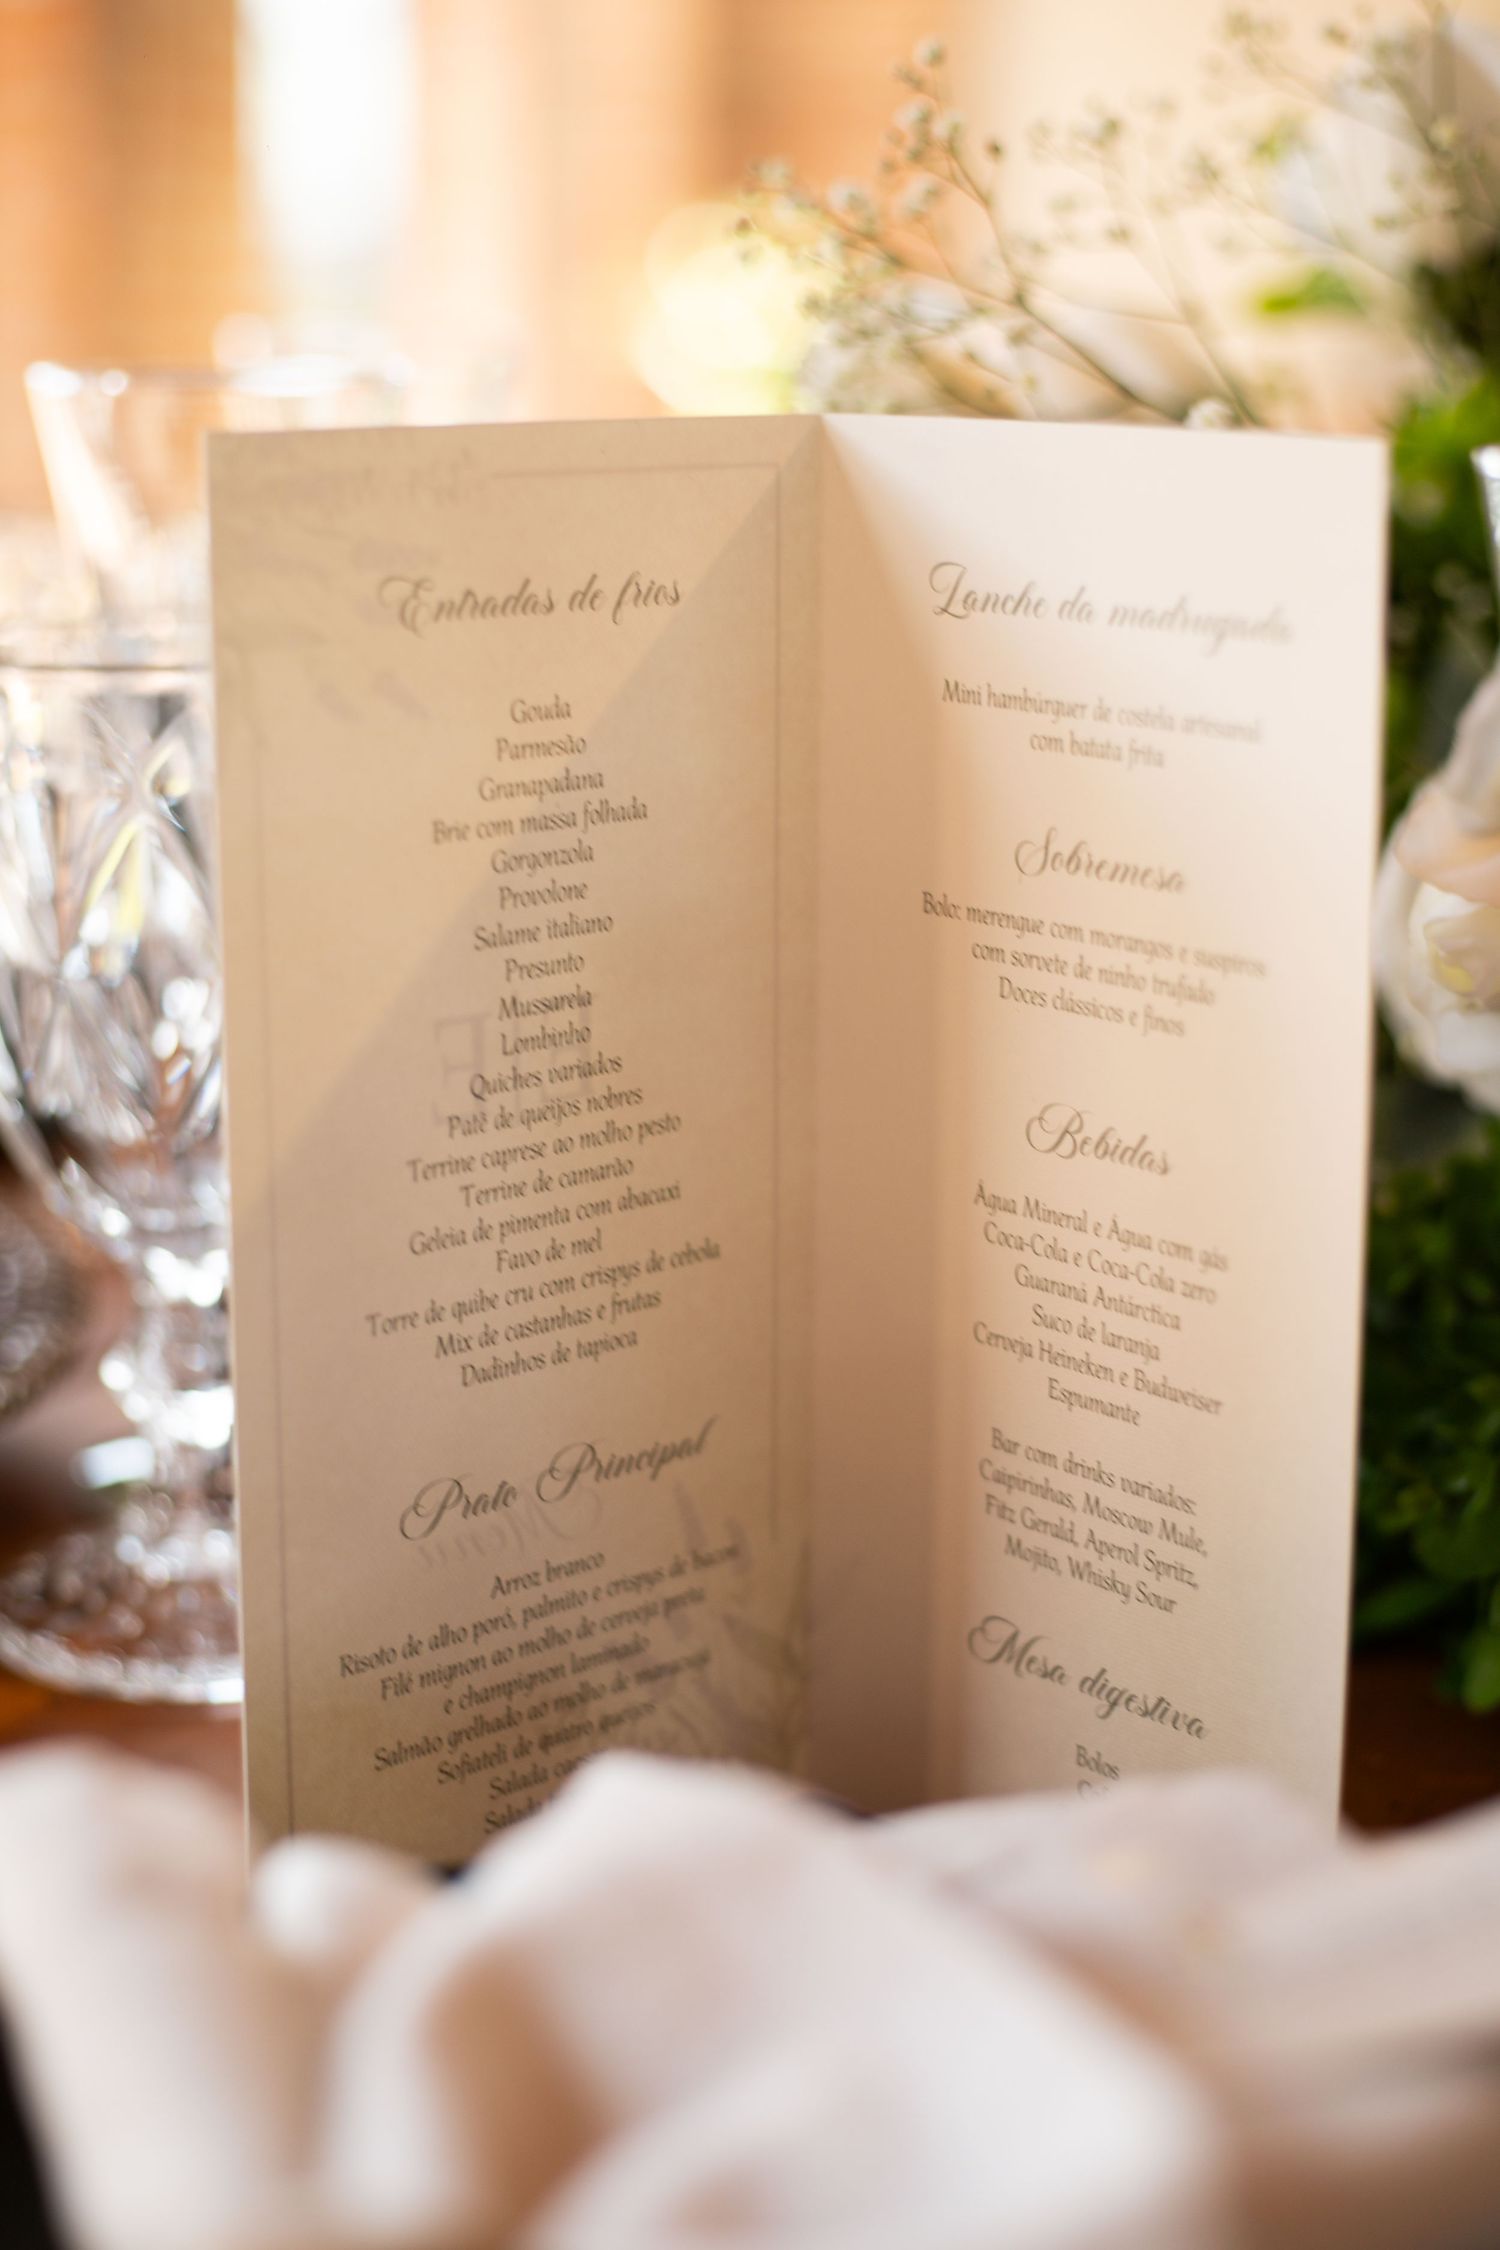 Entradas de frios
Gouda
Parmesão
Granapadana
Brie com massa folhada
Gorgonzola
Provolone
Salame italiano
Presunto
Mussarela
Lombinho
Quiches variados
Patê de queijos nobres
Terrine caprese ao molho pesto
Terrine de camarão
Geleia de pimenta com abacaxi
Favo de mel
Torre de quibe cru com crispys de cebola
Mix de castanhas e frutas
Dadinhos de tapioca
Prato Principal
Arroz branco
Risoto de alho poró, palmito e crispys de bacon
Filé mignon ao molho de cerveja preta
e champignon laminado
Salmão grelhado ao molho de maracujá
Sofiateli de quatro queijos
Salada
Salada
Lanche da madrugada
Mini hambúrguer de costela artesanal
com batata frita
Sobremesa
Bolo: merengue com morangos e suspiros
com sorvete de ninho trufado
Doces clássicos e finos
Bebidas
Água Mineral e Água com gás
Coca-Cola e Coca-Cola zero
Guaraná Antárctica
Suco de laranja
Cerveja Heineken e Budweiser
Espumante
Bar com drinks variados:
Caipirinhas, Moscow Mule,
Fitz Gerald, Aperol Spritz,
Mojito, Whisky Sour
Mesa digestiva
Bolos